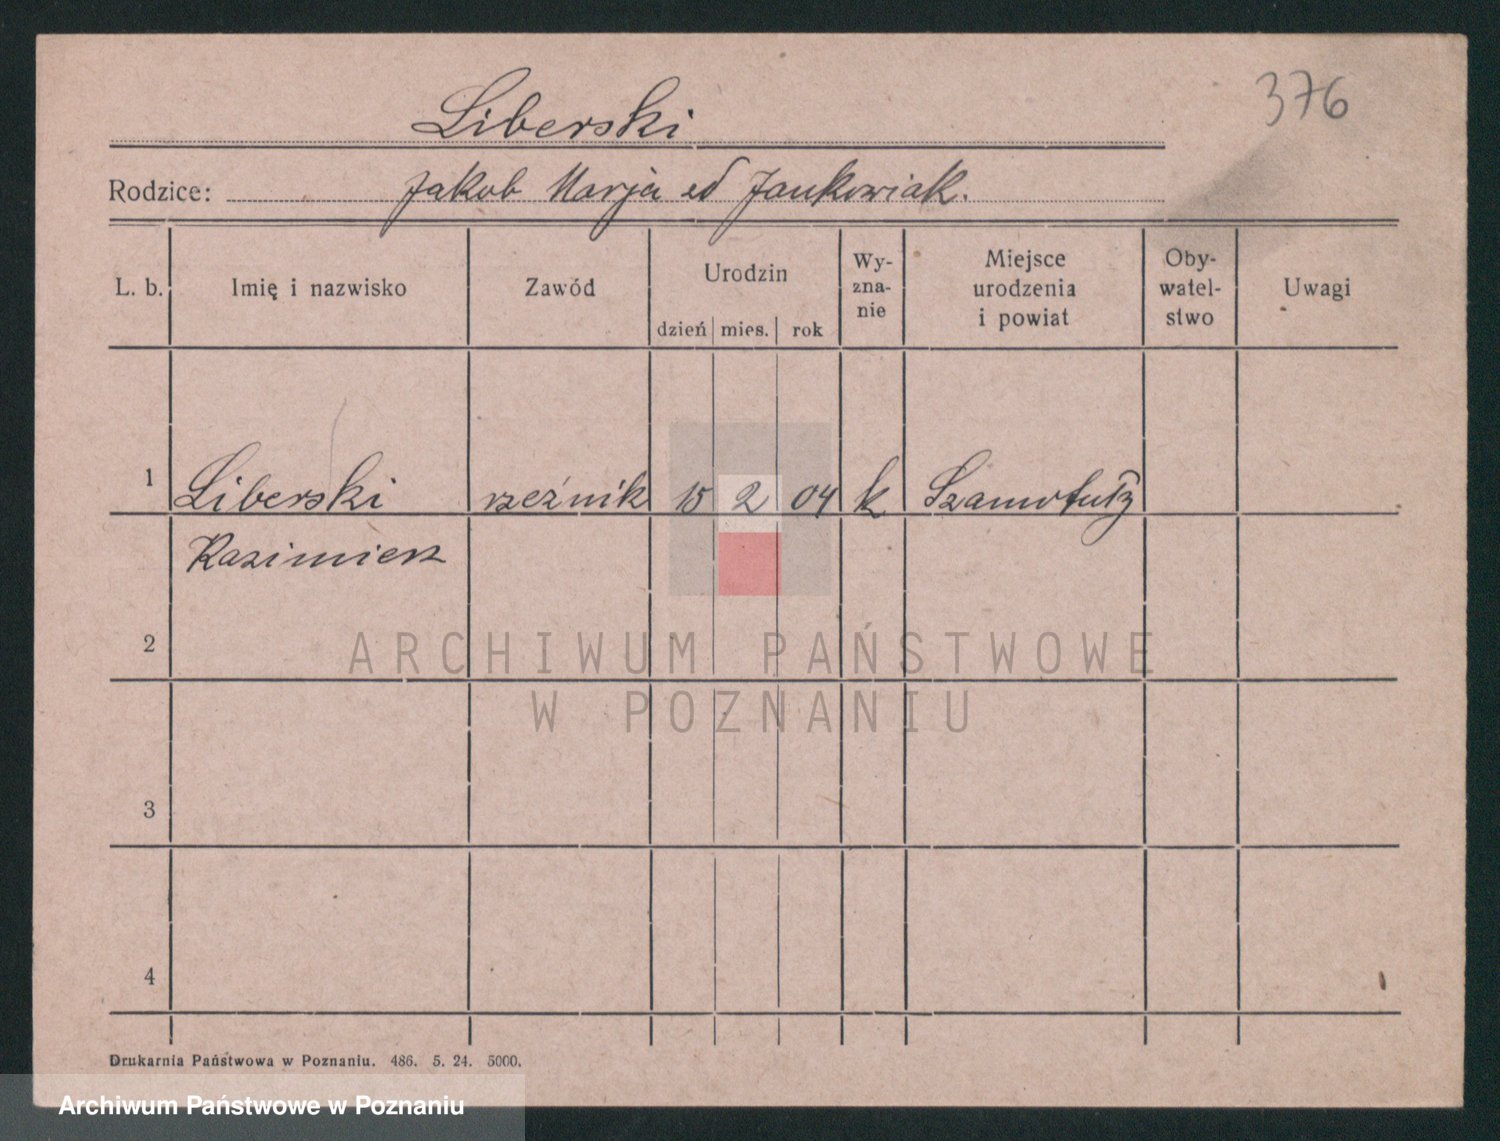 376
Liberski
Rodzice: Jakob Marja ed Jankowiak.
L. b. Imię i nazwisko Zawód Urodzin dzień mies. rok Wy-zna-nie Miejsce urodzenia i powiat Oby-watel-stwo Uwagi
1 Liberski rzeźnik 15 2 04 k Szamotuły
Kazimierz
2
ARCHIWUM PAŃSTWOWE
W POZNANIU
3
4
Drukarnia Państwowa w Poznaniu. 486. 5. 24. 5000.
Archiwum Państwowe w Poznaniu